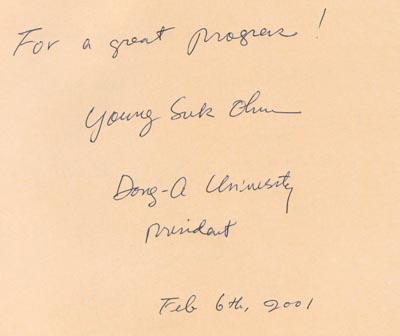 For a great progress!
Young Suk Chun
Dong-A University
president
Feb 6th, 2001